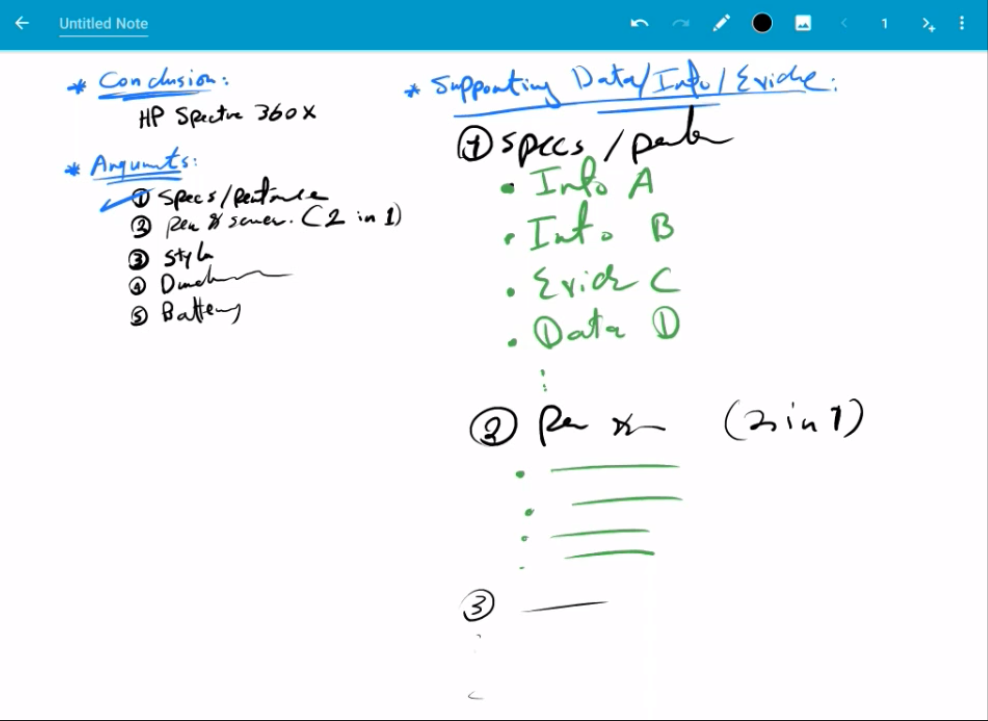 Untitled Note
1
* Conclusion:
HP Spectre 360X
* Arguments:
① Specs/
② Pen & screen. (2 in 1)
③ Style
④
⑤ Battery
* Supporting Data/Info/Evidce:
① Specs /
• Info A
• Info B
• Evide C
• Data D
② Pen (2 in 1)
③